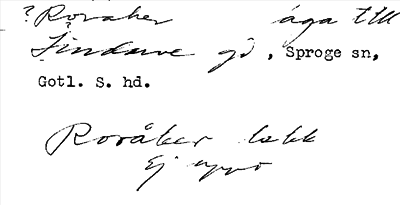 ?Roraker äga till
Lindarve gd, Sproge sn,
Gotl. S. hd.
Roråker bekk
Ej uppt